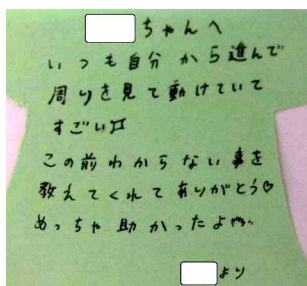 ちゃんへ
いつも自分から進んで
周りを見て動けていて
すごい!!
この前わからない事を
教えてくれてありがとう♡
めっちゃ助かったよ
より